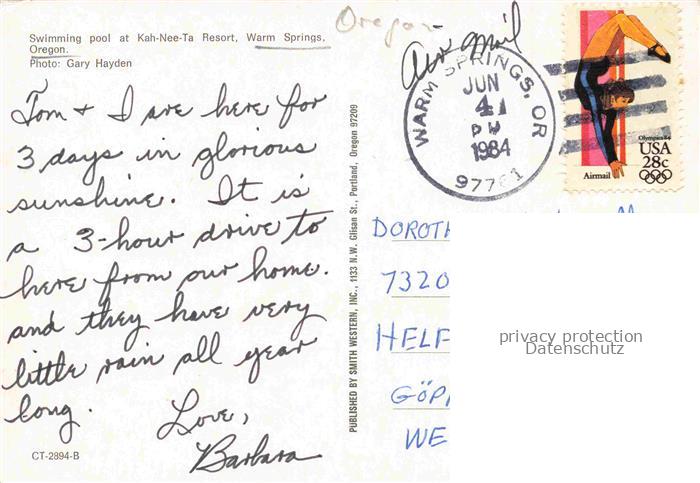 Swimming pool at Kah-Nee-Ta Resort, Warm Springs,
Oregon.
Photo: Gary Hayden
Oregon
Air Mail
WARM SPRINGS, OR
JUN
4
PM
1984
97761
Olympics 84
USA
28c
Airmail
Tom + I are here for
3 days in glorious
sunshine. It is
a 3-hour drive to
here from our home.
and they have very
little rain all year
long.
Love,
Barbara
CT-2894-B
PUBLISHED BY SMITH WESTERN, INC., 1133 N.W. Glisan St., Portland, Oregon 97209
DOROTH
7320
HELF
GÖP
WE
privacy protection
Datenschutz